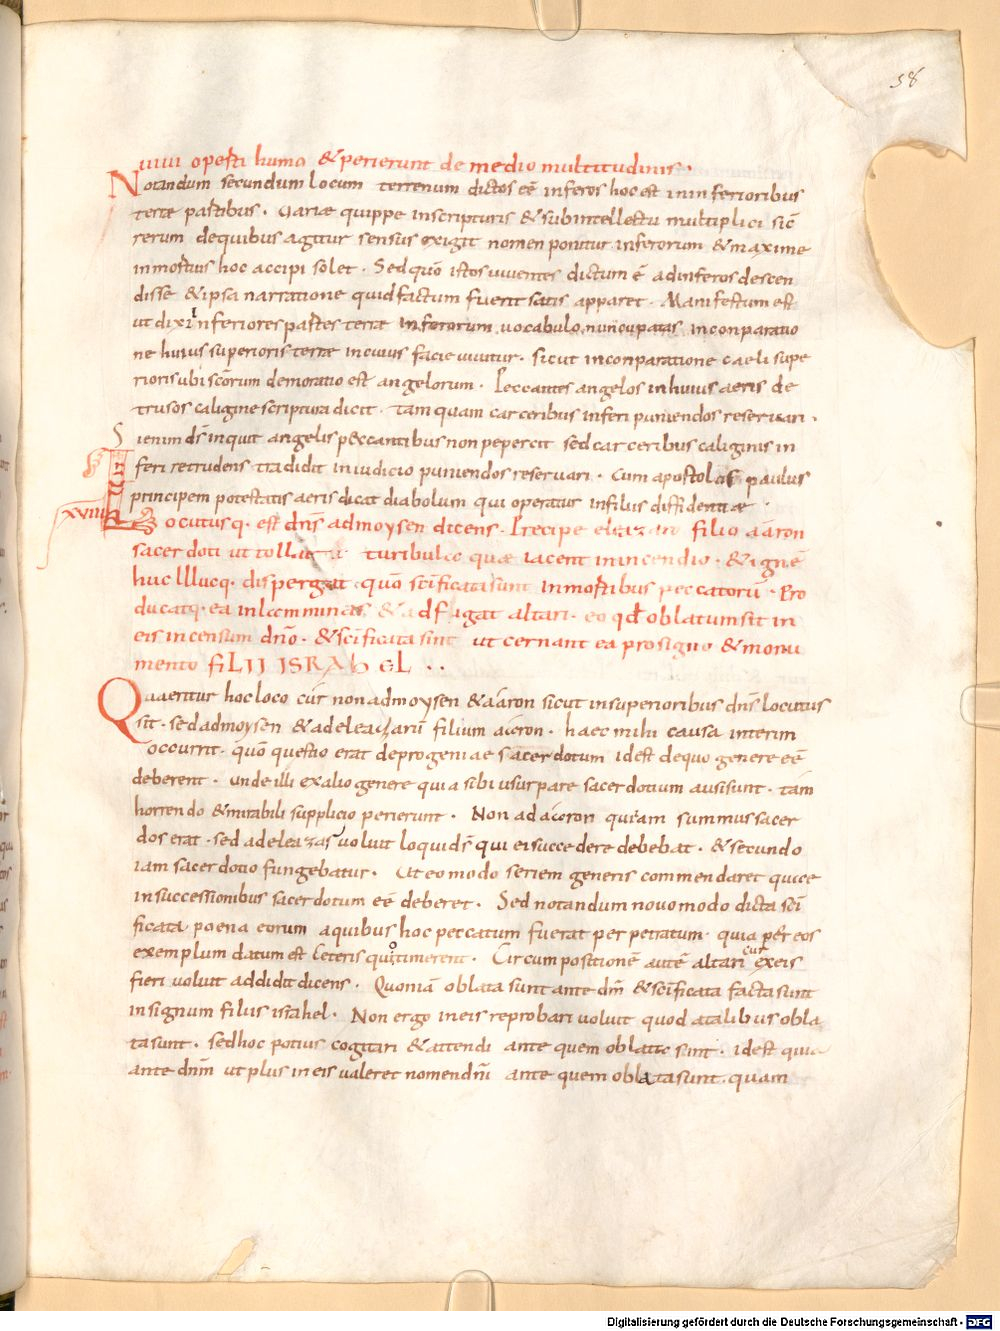 58
uiui opesti humo & perierunt de medio multitudinis.
Notandum secundum locum terrenum dictos eē inferos hoc est in inferioribus
terrae partibus. Variae quippe inscripturis & subintellectu multiplici sic̄
rerum dequibus agitur sensus exigit nomen ponitur inferorum & maxime
inmortuis hoc accipi solet. Sed quō istos uiuentes dictum ē adinferos descen
disse & ipsa narratione quid factum fuerit satis apparet. Manifestum est
ut dixi inferiores partes terrae inferorum uocabulo nuncupatas inconparatio
ne huius superioris terrae incuius facie uiuitur. sicut inconparatione caeli supe
rioris ubi sc̄orum demoratio est angelorum. Peccantes angelos inhuius aeris de
trusos caligine scriptura dicit. tam quam carceribus inferi puniendos reseruari.
Si enim d̄s inquit angelis peccantibus non pepercit sed carceribus caliginis in
feri retrudens tradidit iniudicio puniendos reseruari. Cum apostolus paulus
principem potestatis aeris dicat diabolum qui operatur infilius diffidentiae
xviiii
Locutusq. est dn̄s admoysen dicens. Precipe eleazaro filio aaron
sacerdoti ut tollat turibula quae iacent inincendio. & ignē
huc illucq. dispergat quō sc̄ificata sunt inmortibus peccatorū. Pro
ducatq. ea inlamminas & adfigat altari. eo qd̄ oblatum sit in
eis incensum dn̄o. & sc̄ificata sint ut cernant ea prosigno & monu
mento fiLII ISRAhEL..
Quaeritur hoc loco cur non admoysen & aaron sicut insuperioribus dn̄s locutus
sit. sed admoysen & adeleazarū filium aaron. haec mihi causa interim
occurrit. quō questio erat deprogeniae sacerdotum idest dequo genere eē
deberent. unde illi exalio genere quia sibi usurpare sacerdotium ausi sunt. tam
horrendo & mirabili supplicio perierunt. Non ad aaron quiam summus sacer
dos erat. sed adeleazar uoluit loqui d̄s qui ei succedere debebat. & secundo
iam sacerdotio fungebatur. Ut eo modo seriem generis commendaret quae
insuccessionibus sacerdotum eē deberet. Sed notandum nouo modo dicta sc̄i
ficata poena eorum a quibus hoc peccatum fuerat perpetratum. quia per eos
exemplum datum est ceteris quo timerent. Circumpositionē autē altari cur exeis
fieri uoluit addidit dicens. Quoniā oblata sunt ante dn̄m & sc̄ificata facta sunt
insignum filius israhel. Non ergo ineis reprobari uoluit quod atalibus obla
ta sunt. sed hoc potius cogitari & attendi ante quem oblata sunt. idest quia
ante dn̄m ut plus in eis ualeret nomen dn̄i ante quem oblata sunt. quam
Digitalisierung gefördert durch die Deutsche Forschungsgemeinschaft - DFG